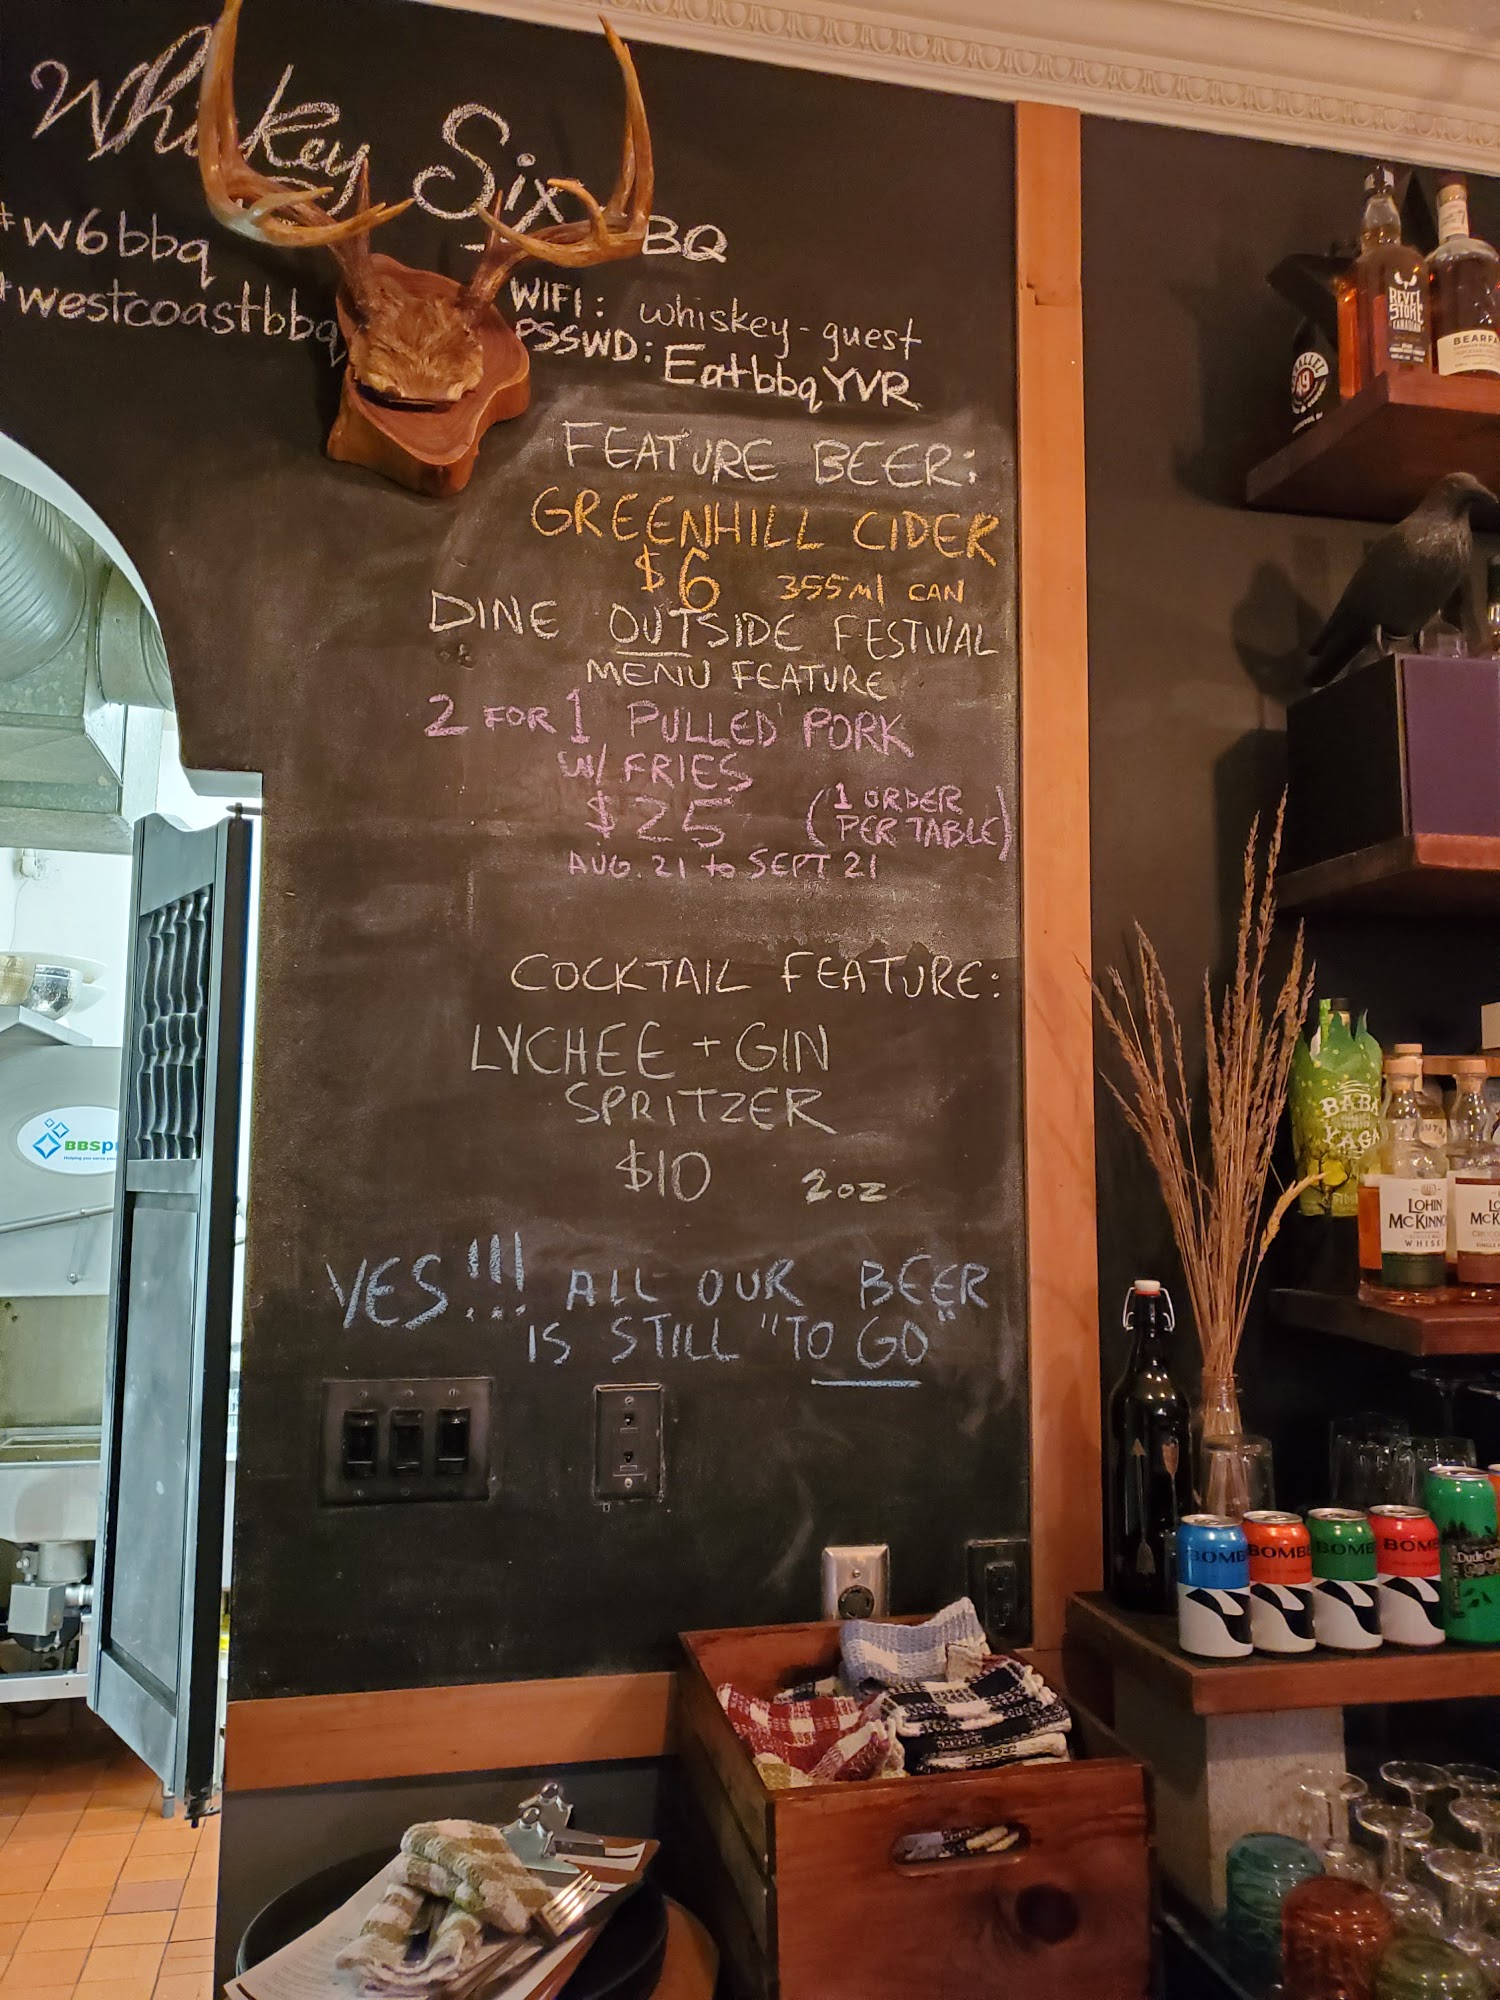 Whiskey Six
BQ
#w6bbq
#westcoastbbq
WIFI: whiskey-guest
PSSWD: EatbbqYVR
FEATURE BEER:
GREENHILL CIDER
$6 355ml CAN
DINE OUTSIDE FESTIVAL
MENU FEATURE
2 FOR 1 PULLED PORK
W/ FRIES
$25 (1 ORDER
PER TABLE)
AUG. 21 to SEPT 21
COCKTAIL FEATURE:
LYCHEE + GIN
SPRITZER
$10 2oz
YES!!! ALL OUR BEER
IS STILL "TO GO"
REVEL
STOKE
CANADIAN
BEARFA
49
BABA
YAGA
LOHIN
MCKINNO
WHISK
LO
MCK
BBSpr
BOMB
BOMB
BOMB
BOMB